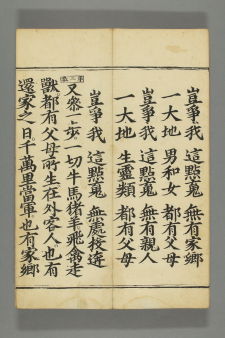 豈爭我 這點䰟 無有家鄉
一大地 男和女 都有父母
豈爭我 這點䰟 無有親人
一大地 生靈類 都有父母
豈爭我 這點䰟 無處投奔
又叅一步一切牛馬猪羊飛禽走
獸都有父母所生在外客人也有
還家之日千萬里當軍也有家鄉